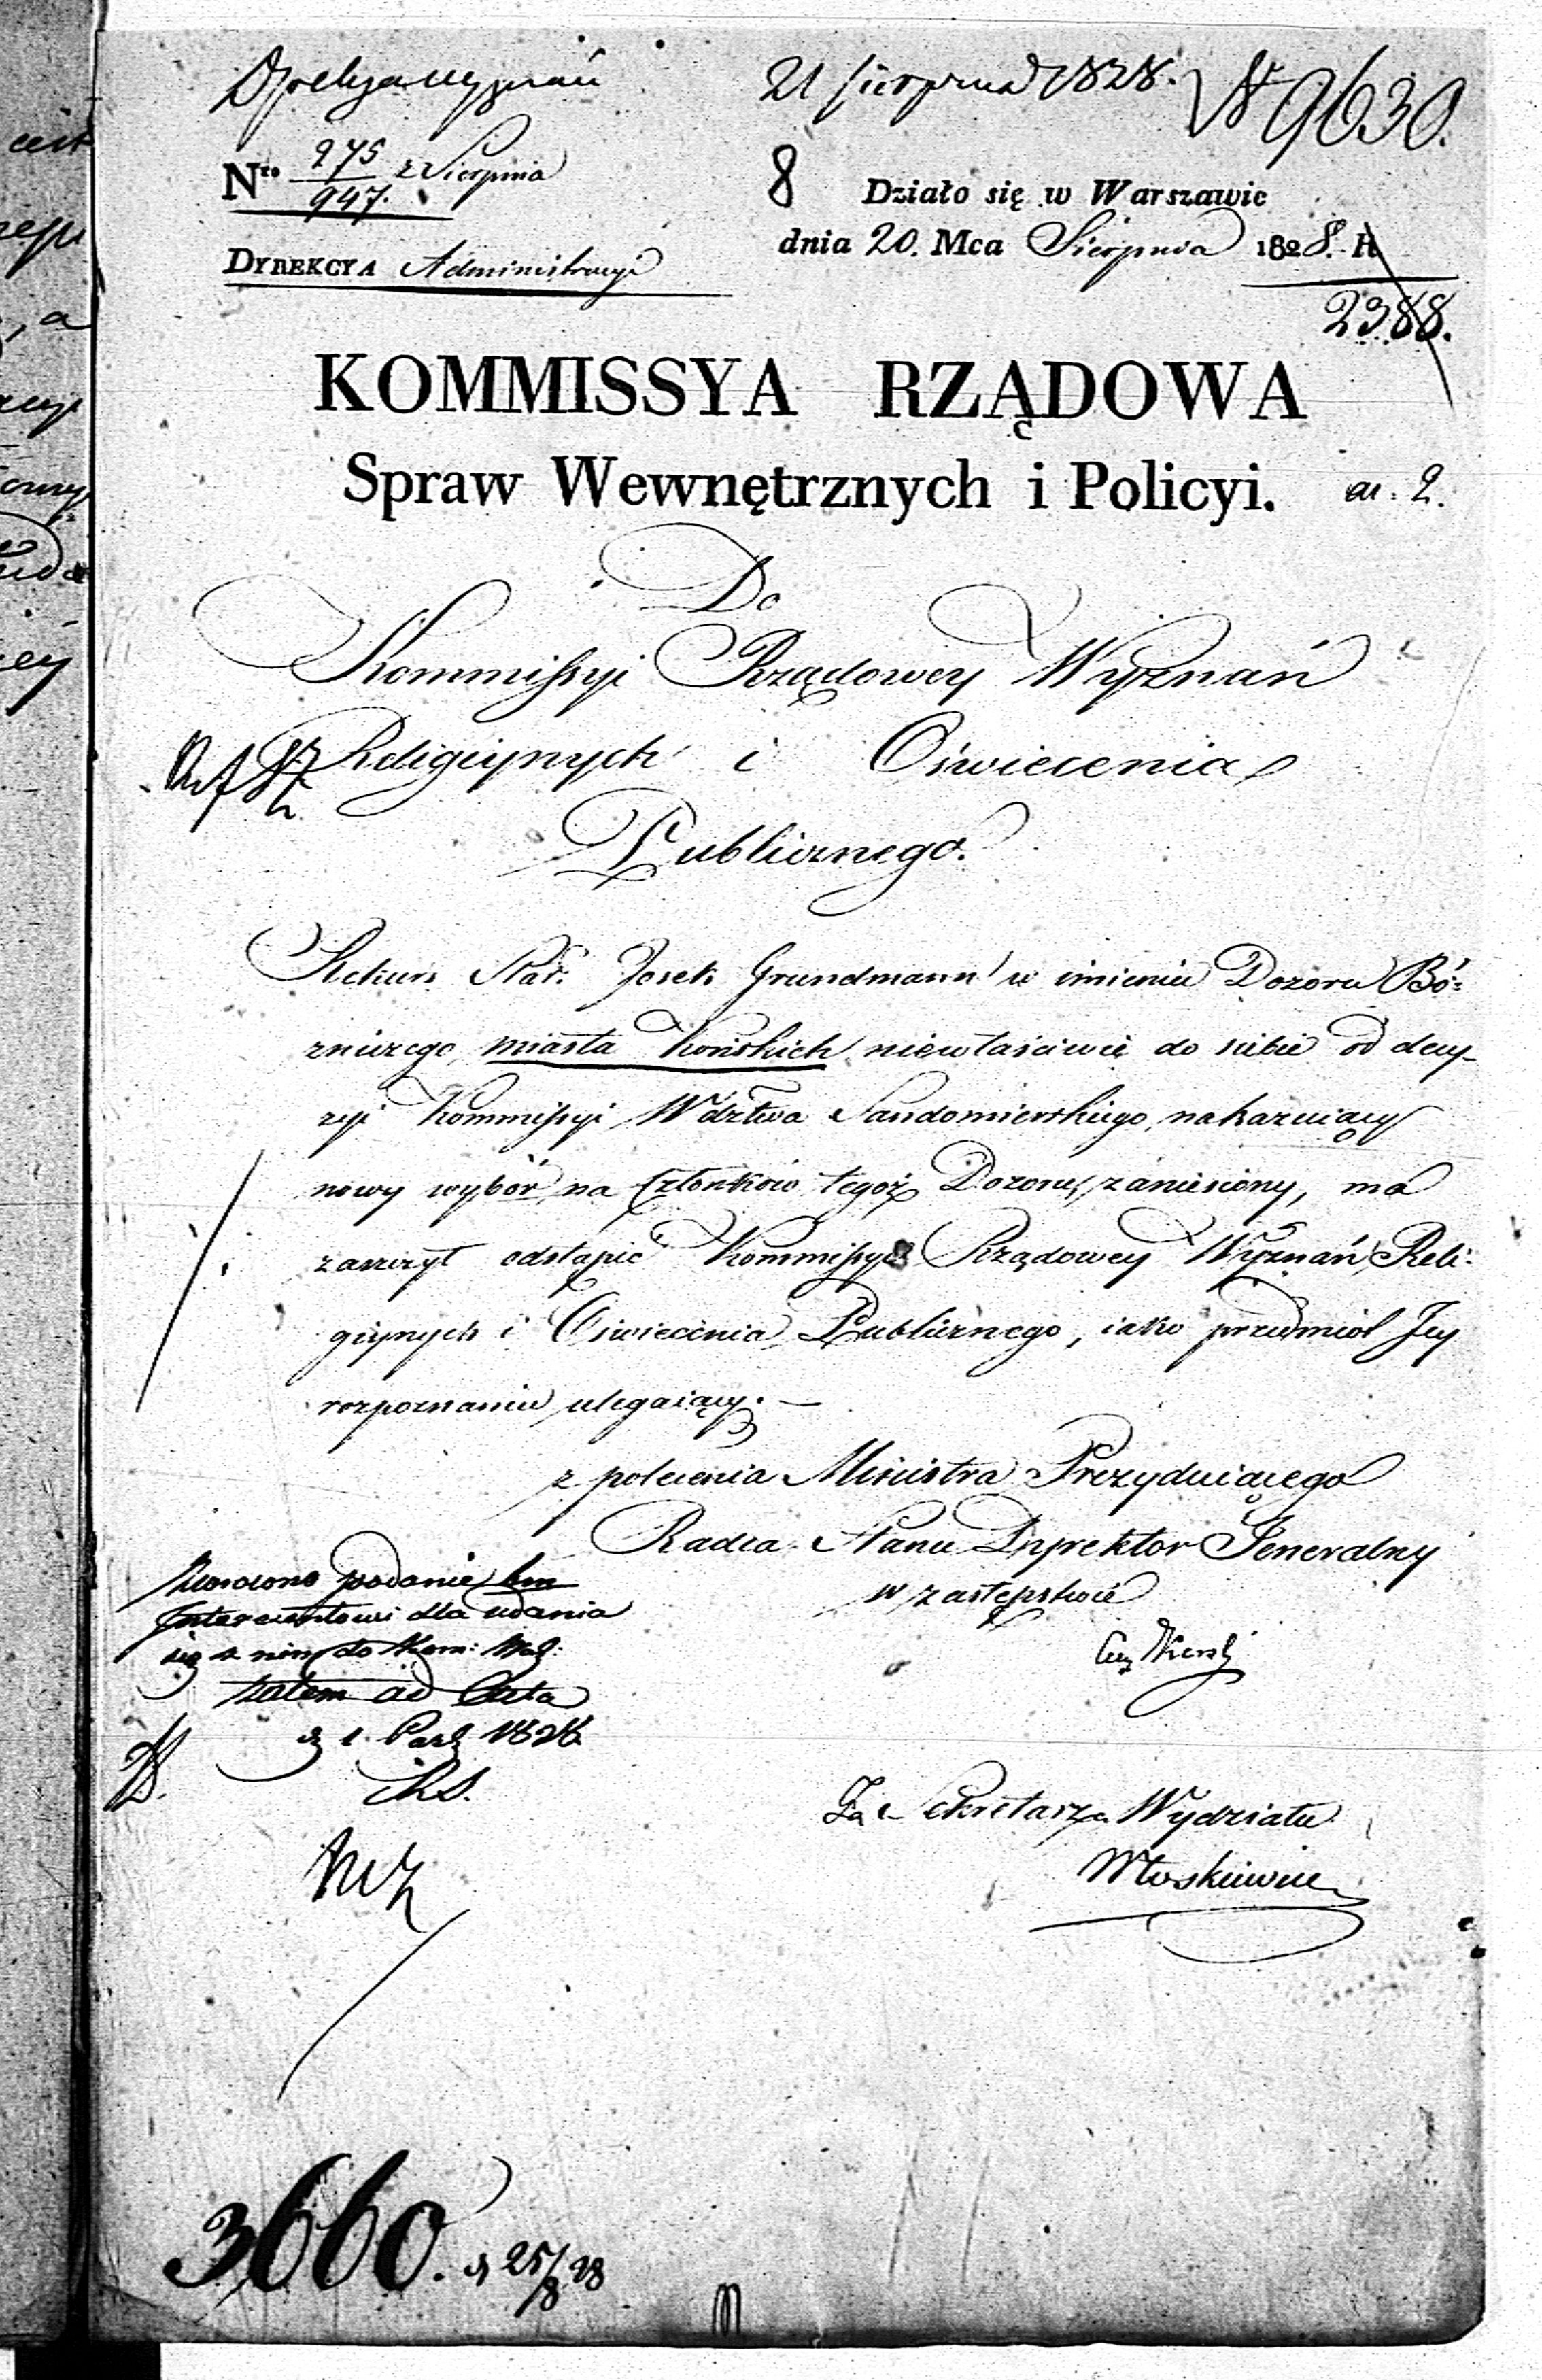 21 Sierpnia 1828. N 9630.
Nro 275/947. z Sierpnia
8 Działo się w Warszawie
dnia 20. Mca Sierpnia 1828. R
DYREKCYA Administracyi
2388.
KOMMISSYA RZĄDOWA
Spraw Wewnętrznych i Policyi.
ar. 2.
Do
Kommissyi Rządowey Wyznań
Religiynych i Oświecenia
Publicznego.
Rekurs Star. Josek Grundmann w imieniu Dozoru Bó=
zniczego miasta Końskich niewłaściwie do siebie od decy-
zyi Kommissyi Wdztwa Sandomierskiego, nakazuiącey
nowy wybór na Członków tegoż Dozoru, zaniesiony, ma
zaszczyt odstąpić Kommissyi Rządowey Wyznań Reli=
giynych i Oświecenia Publicznego, iako przedmiot Jey
rozpoznaniu ulegaiący. —
z polecenia Ministra Prezyduiącego
Radca Stanu Dyrektor Generalny
w zastępstwie
Zwrócono podanie
Interessentowi dla udania
się z nim do Kom: Woj:
zatem ad Acta
d 1. Paź 1828.
Za Sekretarza Wydziału
3660. d 25/8 28